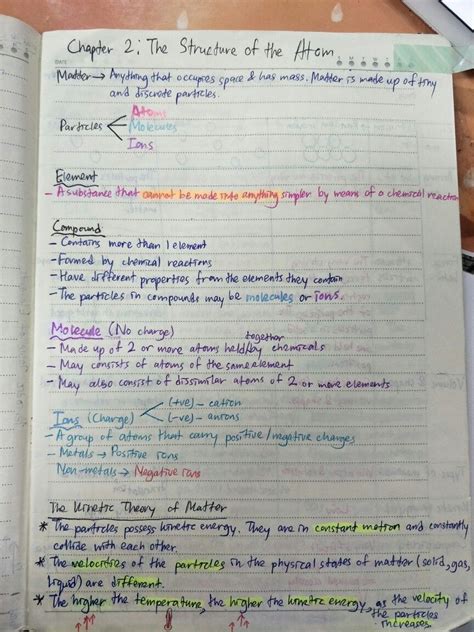 Chapter 2: The Structure of the Atom
DATE
Matter → Anything that occupies space & has mass. Matter is made up of tiny
and discrete particles.
Atoms
Particles Molecules
Ions
Element
- A substance that cannot be made into anything simpler by means of a chemical reaction
Compound
- Contains more than 1 element
- Formed by chemical reactions
- Have different properties from the elements they contain
- The particles in compounds may be molecules or ions.
Molecule (No charge)
together
- Made up of 2 or more atoms held/by chemicals
- May consists of atoms of the same element
- May also consist of dissimilar atoms of 2 or more elements
Ions (Charge) (+ve) - cation
(-ve) - anions
- A group of atoms that carry positive/negative charges
- Metals → Positive ions
Non-metals → Negative ions
The Kinetic Theory of Matter
* The particles possess kinetic energy. They are in constant motion and constantly
collide with each other.
* The velocities of the particles in the physical states of matter (solid, gas,
liquid) are different.
* The higher the temperature, the higher the kinetic energy, as the velocity of
the particles
increases.